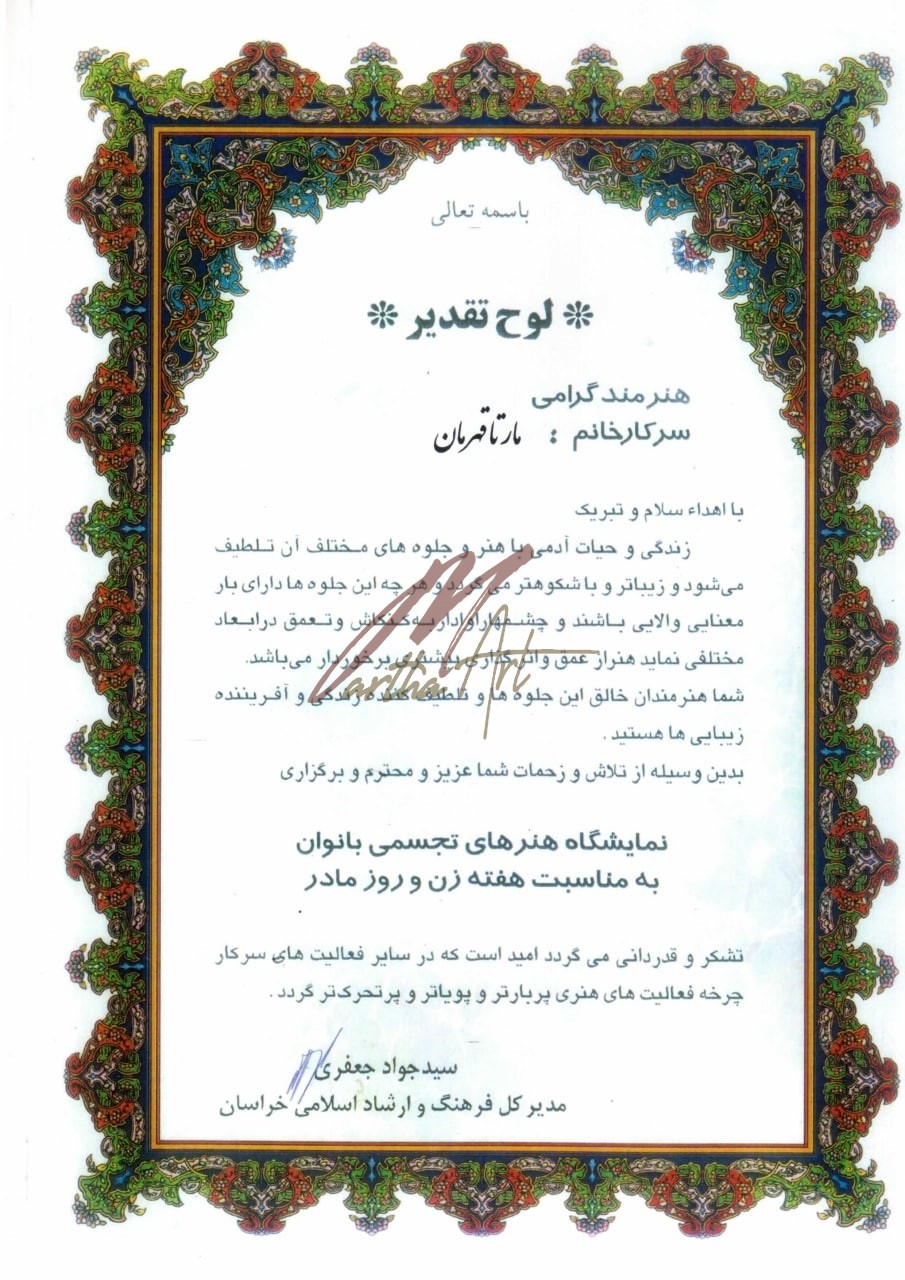 باسمه تعالی
لوح تقدیر
هنرمند گرامی
سرکارخانم : مارتا قهرمان
با اهداء سلام و تبریک
زندگی و حیات آدمی با هنر و جلوه های مختلف آن تلطیف
می‌شود و زیباتر و باشکوهتر می گردد و هر چه این جلوه ها دارای بار
معنایی والایی باشند و چشمهاراوادار به کنکاش وتعمق درابعاد
مختلفی نماید هنراز عمق واثر گذاری بیشتری برخوردار می‌باشد.
شما هنرمندان خالق این جلوه ها و تلطیف کننده زندگی و آفریننده
زیبایی ها هستید .
بدین وسیله از تلاش و زحمات شما عزیز و محترم و برگزاری
نمایشگاه هنرهای تجسمی بانوان
به مناسبت هفته زن و روز مادر
تشکر و قدردانی می گردد امید است که در سایر فعالیت های سرکار
چرخه فعالیت های هنری پربارتر و پویاتر و پرتحرک‌تر گردد .
سیدجواد جعفری
مدیرکل فرهنگ و ارشاد اسلامی خراسان
Martha Art